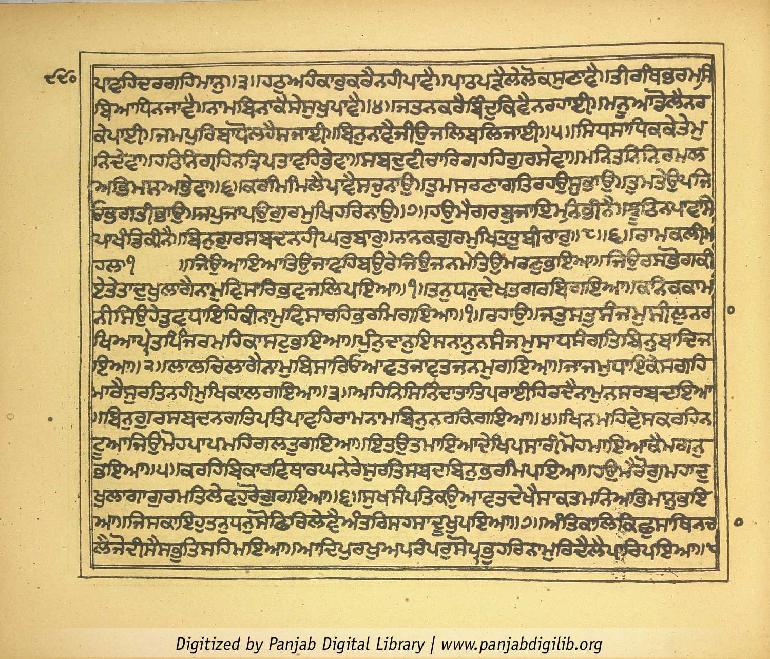 ੯੬੦
ਪਾਵਹਿਦਰਗਹਿਮਾਨੁ॥੩॥ਹਠੁਅਹੰਕਾਰੁਕਰੈਨਹੀਪਾਵੈ॥ਪਾਠਪੜੈਲੇਲੋਕਸੁਣਾਵੈ॥ਤੀਰਥਿਭਰਮਸਿ
ਬਿਆਧਿਨਜਾਵੈ॥ਨਾਮਬਿਨਾਕੈਸੇਸੁਖੁਪਾਵੈ॥੪॥ਜਤਨਕਰੈਬਿੰਦੁਕਿਵੈਨਰਹਾਈ॥ਮਨੂਆਡੋਲੈਨਰ
ਕੇਪਾਈ॥ਜਮਪੁਰਿਬਾਧੋਲਹੈਸਜਾਈ॥ਬਿਨੁਨਾਵੈਜੀਉਜਲਿਬਲਿਜਾਈ॥੫॥ਸਿਧਸਾਧਿਕਕੇਤੇਮੁ
ਨਿਦੇਵਾ॥ਹਠਿਨਿਗ੍ਰਹਿਨਤ੍ਰਿਪਤਾਵਹਿਭੇਵਾ॥ਸਬਦੁਵੀਚਾਰਿਗਹਹਿਗੁਰਸੇਵਾ॥ਮਨਿਤਨਿਨਿਰਮਲ
ਅਭਿਮਾਨਅਭੇਵਾ॥੬॥ਕਰਮਿਮਿਲੈਪਾਵੈਸਚੁਨਾਉ॥ਤੁਮਸਰਣਾਗਤਿਰਹਉਸੁਭਾਉ॥ਤੁਮਤੇਉਪਜਿ
ਓਭਗਤੀਭਾਉ॥ਜਪੁਜਾਪਉਗੁਰਮੁਖਿਹਰਿਨਾਉ॥੭॥ਹਉਮੈਗਰਬੁਜਾਇਮਨਿਭੀਨੈ॥ਝੂਠਿਨਪਾਵਸਿ
ਪਾਖੰਡਿਕੀਨੈ॥ਬਿਨੁਗੁਰਸਬਦਨਹੀਘਰੁਬਾਰੁ॥ਨਾਨਕਗੁਰਮੁਖਿਤਤੁਬੀਚਾਰੁ॥੮॥੬॥ਰਾਮਕਲੀਮ
ਹਲਾ੧ ॥ਜਿਉਆਇਆਤਿਉਜਾਵਹਿਬਉਰੇਜਿਉਜਨਮੇਤਿਉਮਰਨੁਭਇਆ॥ਜਿਉਰਸਭੋਗਕੀ
ਏਤੇਤਾਦੁਖੁਲਾਗੈਨਾਮੁਵਿਸਾਰਿਭਵਜਲਿਪਇਆ॥੧॥ਤਨੁਧਨੁਦੇਖਤਗਰਬਿਗਇਆ॥ਕਨਿਕਕਾਮ
ਨੀਸਿਉਹੇਤੁਵਧਾਇਹਿਕੀਨਾਮੁਵਿਸਾਰਹਿਭਰਮਿਗਇਆ॥੧॥ਰਹਾਉ॥ਜਤੁਸਤੁਸੰਜਮੁਸੀਲੁਨਰਾ
ਖਿਆਪ੍ਰੇਤਪਿੰਜਰਮਹਿਕਾਸਟੁਭਇਆ॥ਪੁੰਨੁਦਾਨੁਇਸਨਾਨੁਨਸੰਜਮੁਸਾਧਸੰਗਤਿਬਿਨੁਬਾਦਿਜ
ਇਆ॥੨॥ਲਾਲਚਿਲਾਗੈਨਾਮੁਬਿਸਾਰਿਓਆਵਤਜਾਵਤਜਨਮੁਗਇਆ॥ਜਾਜਮੁਧਾਇਕੇਸਗਹਿ
ਮਾਰੈਸੁਰਤਿਨਹੀਮੁਖਿਕਾਲਗਇਆ॥੩॥ਅਹਿਨਿਸਿਨਿੰਦਾਤਾਤਿਪਰਾਈਹਿਰਦੈਨਾਮੁਨਸਰਬਦਇਆ
॥ਬਿਨੁਗੁਰਸਬਦਨਗਤਿਪਤਿਪਾਵਹਿਰਾਮਨਾਮਬਿਨੁਨਰਕਿਗਇਆ॥੪॥ਖਿਨਮਹਿਵੇਸਕਰਹਿਨ
ਟੂਆਜਿਉਮੋਹਪਾਪਮਹਿਗਲਤੁਗਇਆ॥ਇਤਉਤਮਾਇਆਦੇਖਿਪਸਾਰੀਮੋਹਮਾਇਆਕੈਮਗਨੁ
ਭਇਆ॥੫॥ਕਰਹਿਬਿਕਾਰਵਿਥਾਰਘਨੇਰੇਸੁਰਤਿਸਬਦਬਿਨੁਭਰਮਿਪਇਆ॥ਹਉਮੈਰੋਗੁਮਹਾਦੁ
ਖੁਲਾਗਾਗੁਰਮਤਿਲੇਵਹੁਰੋਗੁਗਇਆ॥੬॥ਸੁਖਸੰਪਤਿਕਉਆਵਤਦੇਖੈਸਾਕਤਮਨਿਅਭਿਮਾਨੁਭਇ
ਆ॥ਜਿਸਕਾਇਹੁਤਨੁਧਨੁਸੋਫਿਰਿਲੇਵੈਅੰਤਰਿਸਹਸਾਦੂਖੁਪਇਆ॥੭॥ਅੰਤਿਕਾਲਿਕਿਛੁਸਾਥਿਨਚਾ
ਲੈਜੋਦੀਸੈਸਭੁਤਿਸਹਿਮਇਆ॥ਆਦਿਪੁਰਖੁਅਪਰੰਪਰੁਸੋਪ੍ਰਭੁਹਰਿਨਾਮੁਰਿਦੈਲੈਪਾਰਿਪਇਆ॥੮
Digitized by Panjab Digital Library | www.panjabdigilib.org